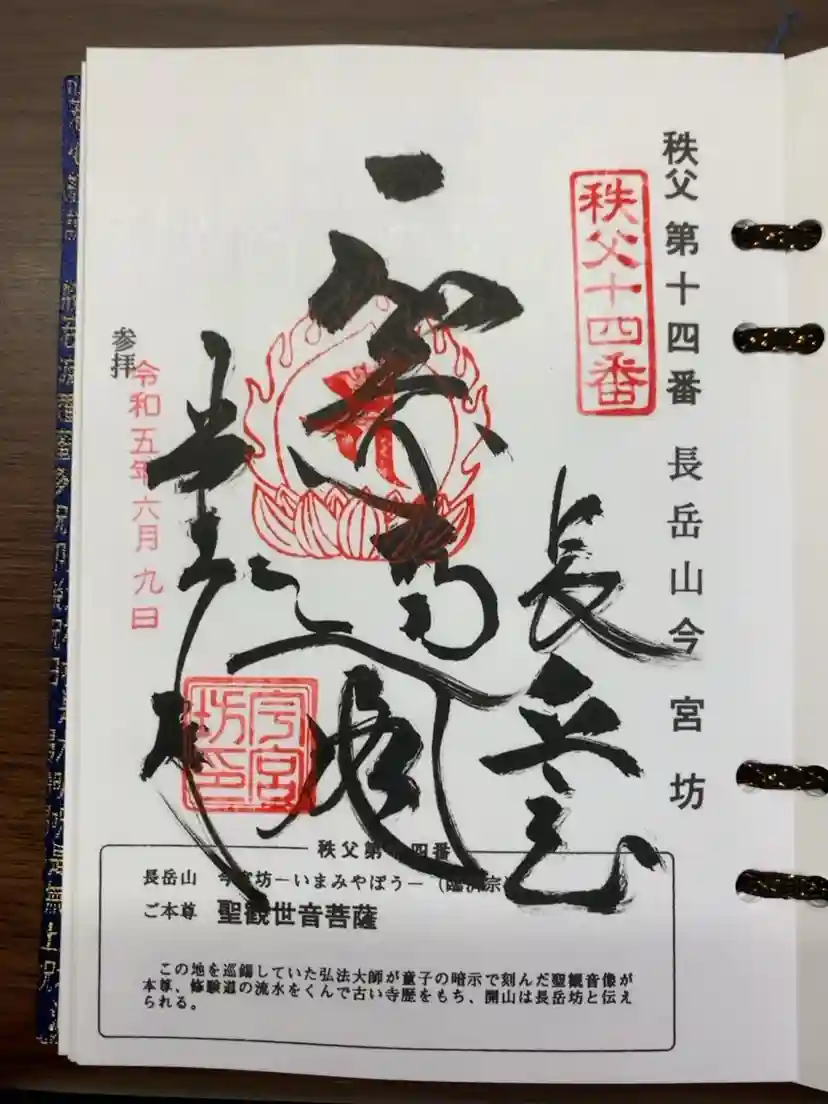 秩父 第十四番 長岳山 今宮坊
秩父十四番
長岳
参拝
令和五年六月九日
今宮
坊印
秩父第十四番
長岳山 今宮坊－いまみやぼう－（臨済宗
ご本尊 聖観世音菩薩
この地を巡錫していた弘法大師が童子の暗示で刻んだ聖観音像が
本尊、修験道の流水をくんで古い寺歴をもち、開山は長岳坊と伝え
られる。